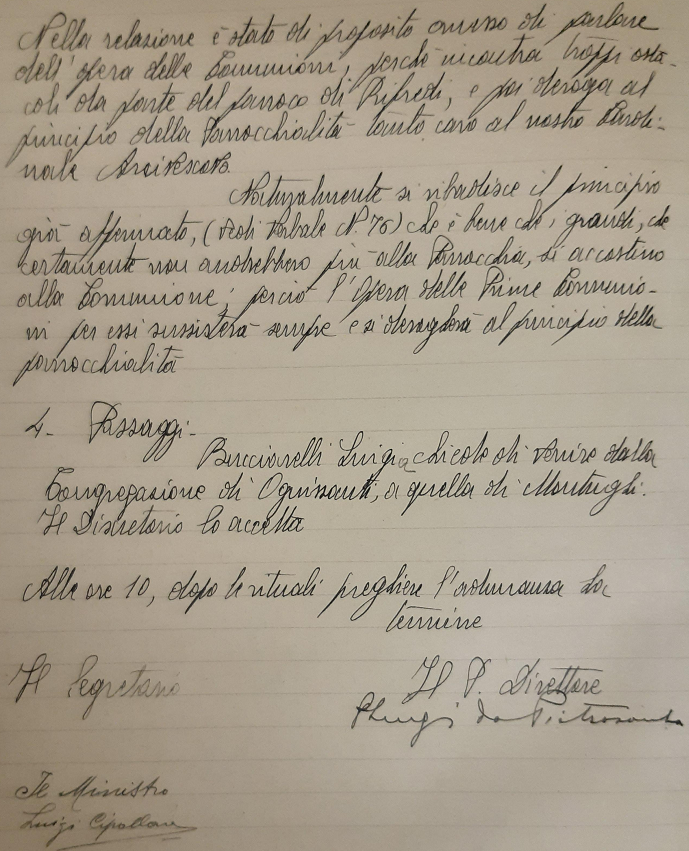 Nella relazione è stato di proposito omesso di parlare
dell'opera delle Comunioni, perchè incontra troppi osta-
coli da parte del parroco di Rifredi, e poi deroga al
principio della Parrocchialità tanto caro al nostro Cardi-
nale Arcivescovo.
Naturalmente si ribadisce il principio
già affermato, (Vedi Verbale N. 76) che è bene che i grandi, che
certamente non andrebbero più alla Parrocchia, si accostino
alla Comunione; perciò l'Opera delle Prime Comunio-
ni per essi sussisterà sempre e si derogherà al principio della
parrocchialità
4- Passaggi-
Bucciarelli Luigi chiede di venire dalla
Congregazione di Ognissanti, a quella di Montughi.
Il Discretorio lo accetta
Alle ore 10, dopo le rituali preghiere l'adunanza ha
termine
Il Segretario
Il P. Direttore
P Luigi da Pietrasanta
Il Ministro
Luigi Cipollone